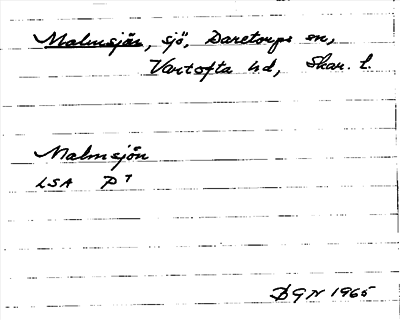 Malmsjön, sjö, Daretorps sn,
Vartofta hd, Skar. l.
Malmsjön
LSA P 7
DGN 1965